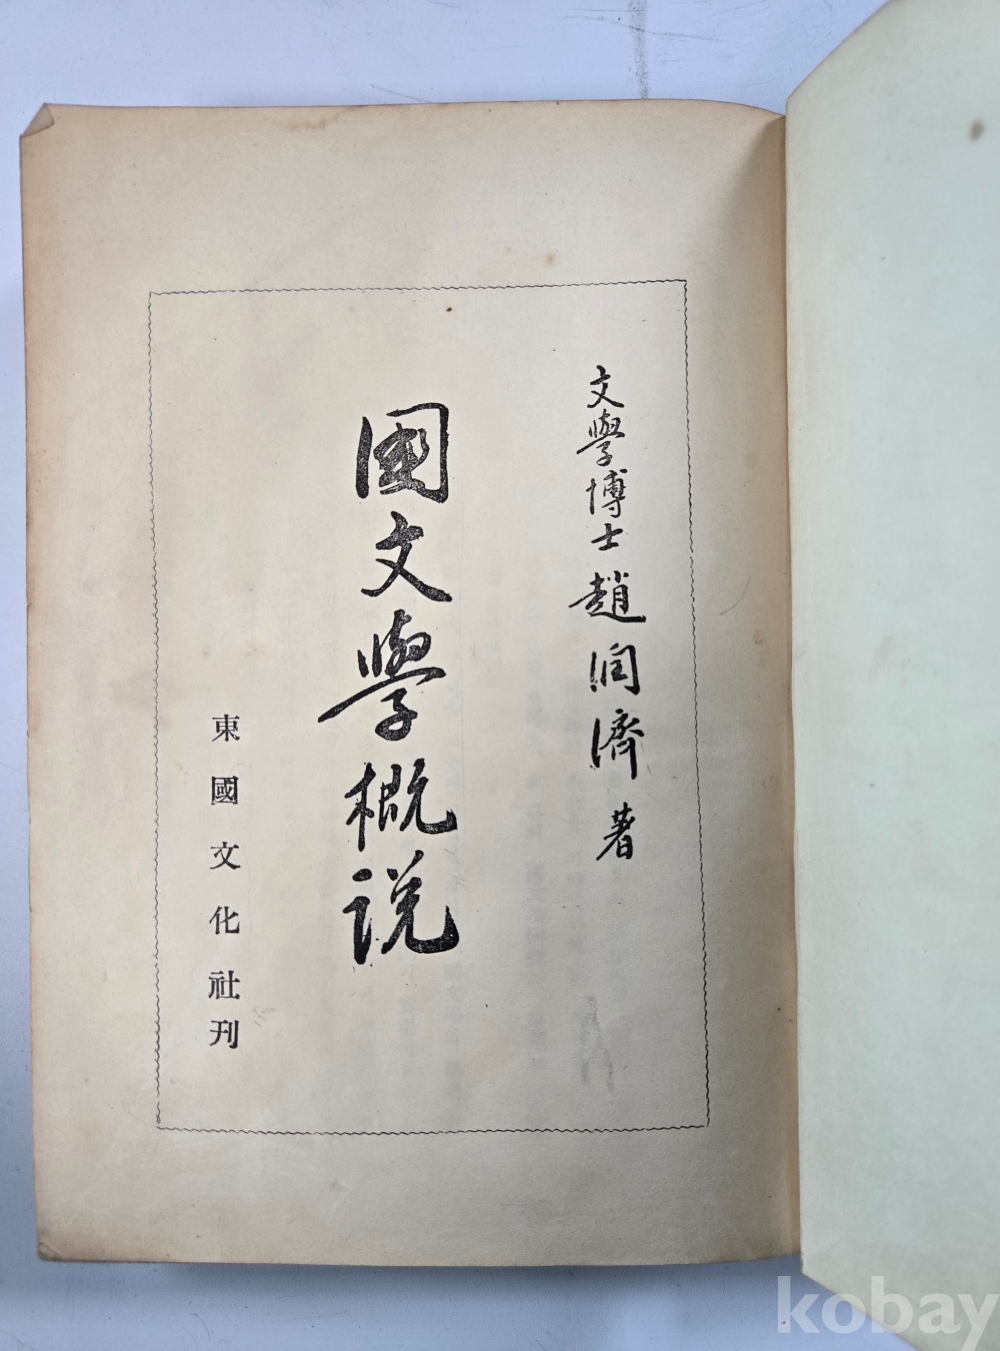 文學博士 趙潤濟 著
國文學概説
東國文化社刊
kobay